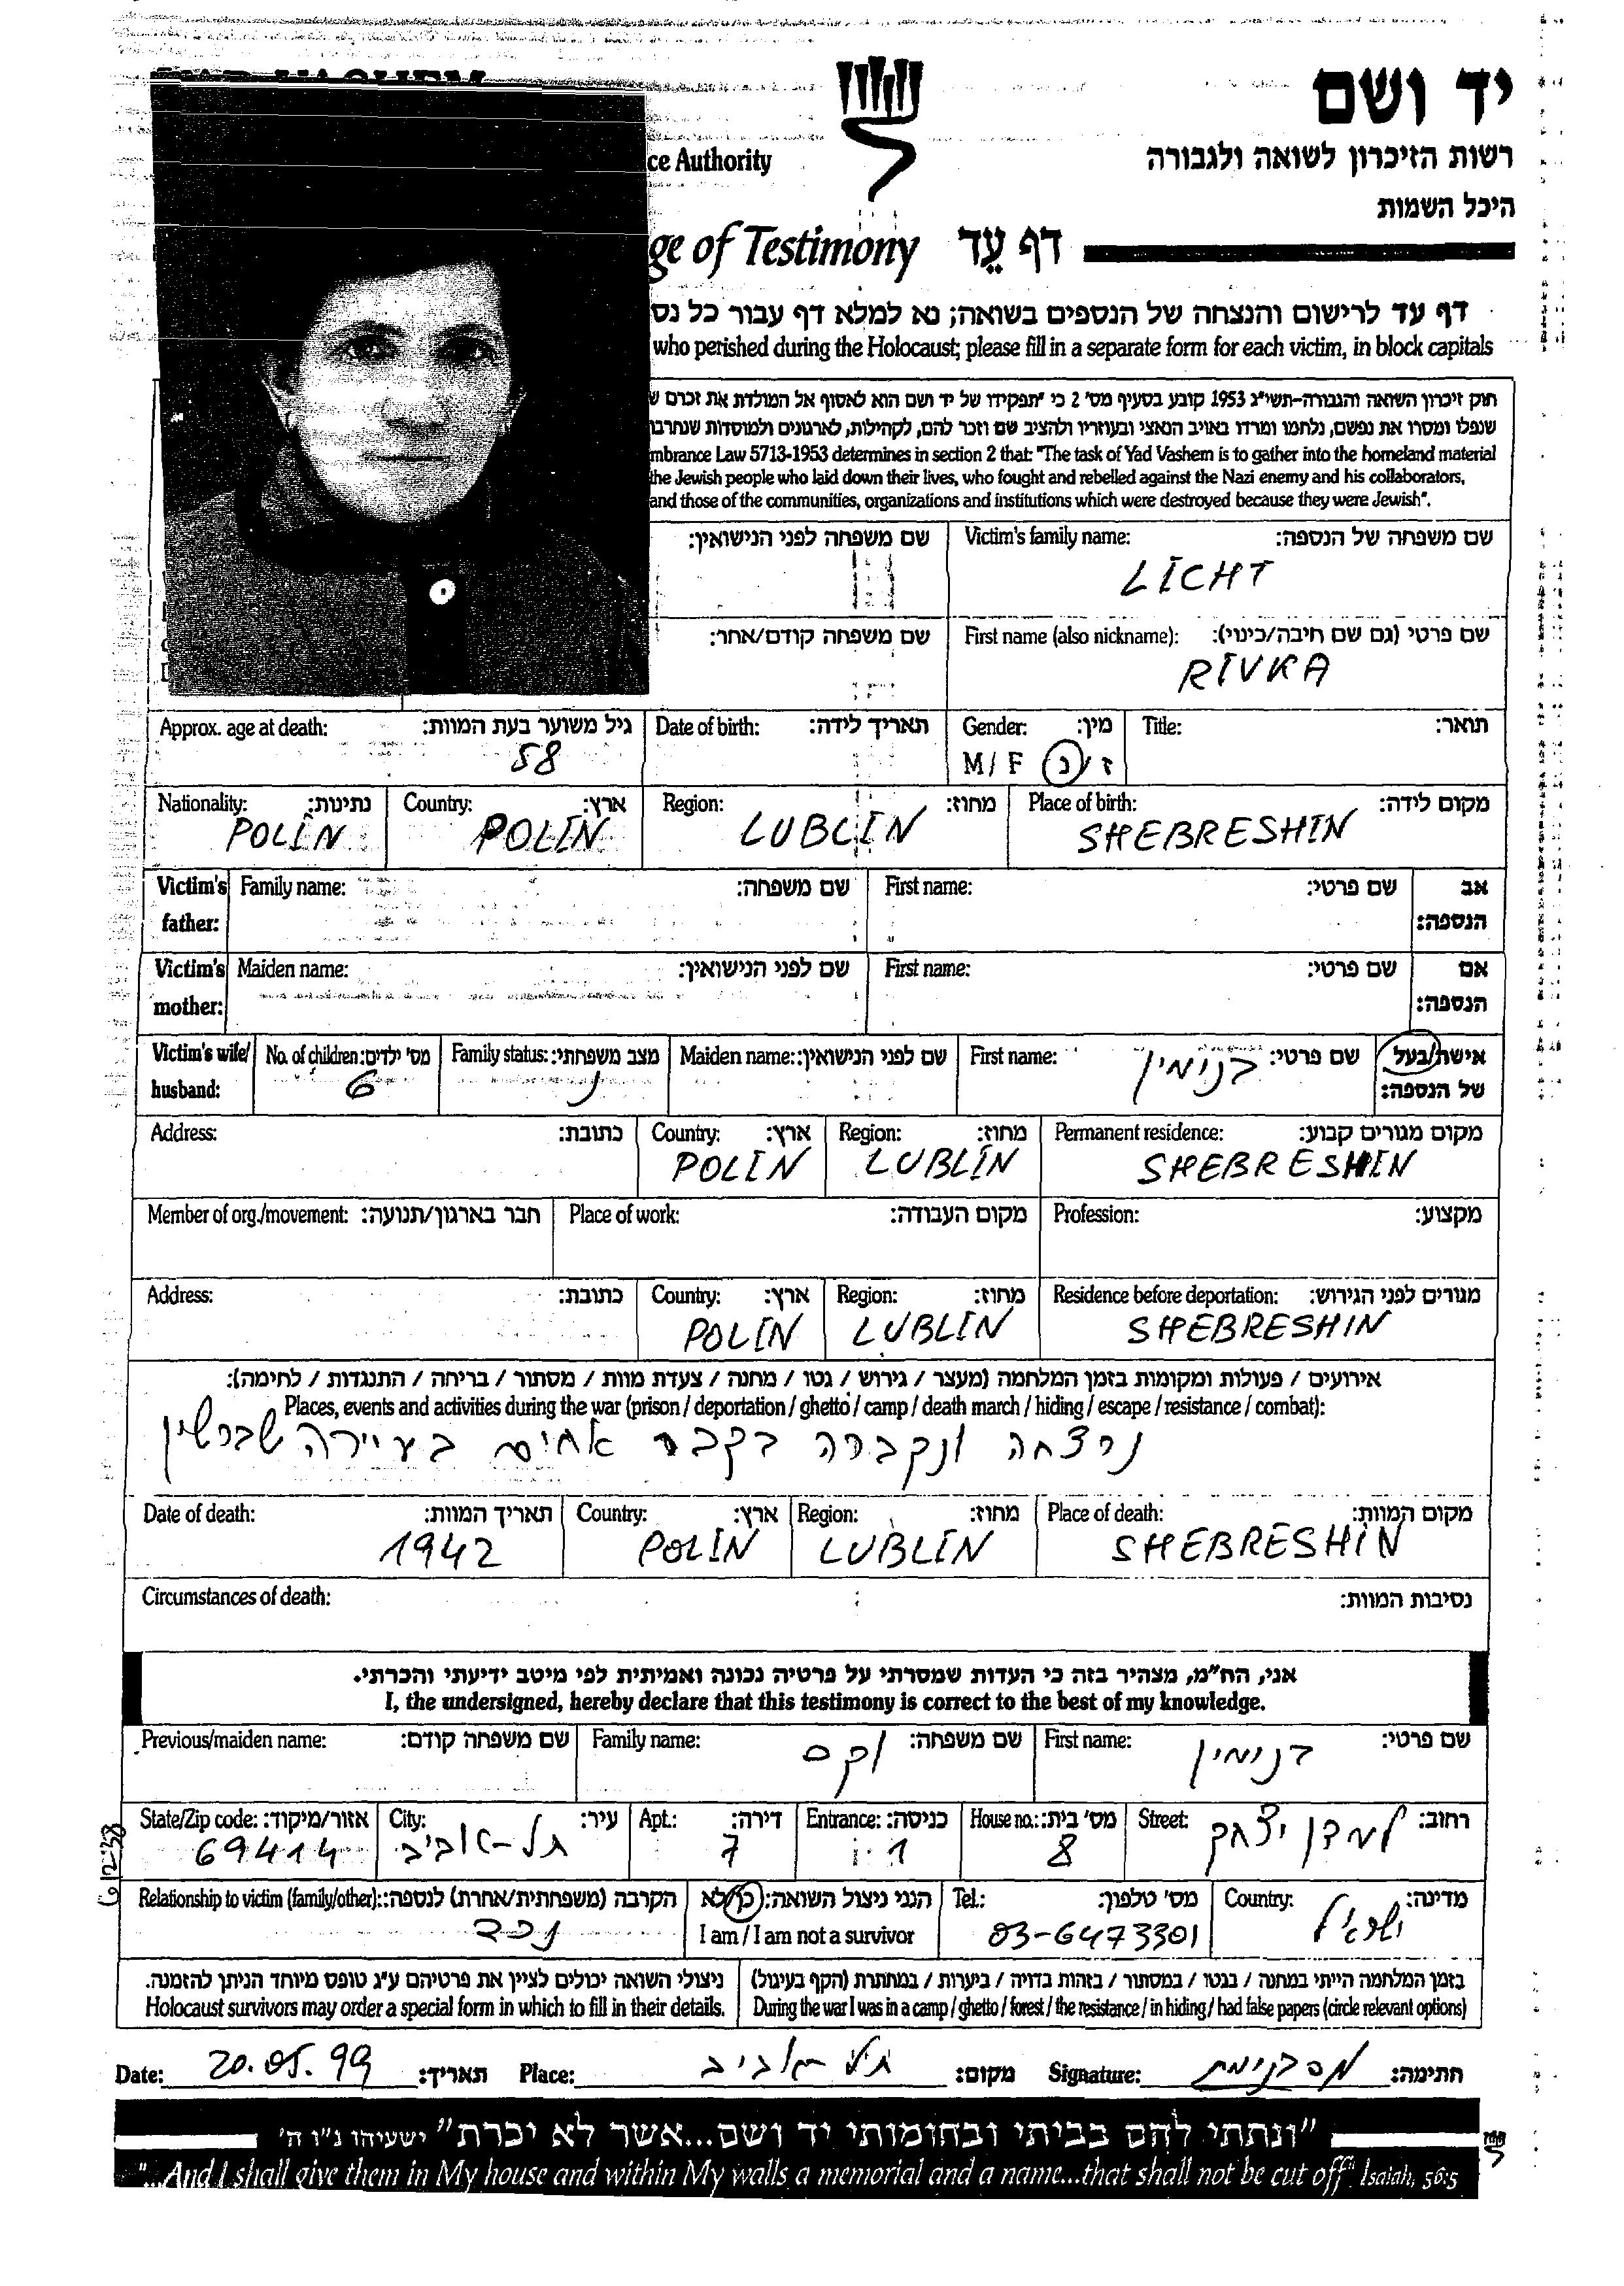 יד ושם
רשות הזיכרון לשואה ולגבורה
ce Authority
היכל השמות
ge of Testimony דף עֵד
דף עד לרישום והנצחה של הנספים בשואה; נא למלא דף עבור כל נס
who perished during the Holocaust; please fill in a separate form for each victim, in block capitals
חוק זיכרון השואה והגבורה-תשי"ג 1953 קובע בסעיף מס' 2 כי "תפקידו של יד ושם הוא לאסוף אל המולדת את זכרם ש
שנפלו ומסרו את נפשם, נלחמו ומרדו באויב הנאצי ובעוזריו ולהציב שם וזכר להם, לקהילות, לארגונים ולמוסדות שנחרבו
mbrance Law 5713-1953 determines in section 2 that: "The task of Yad Vashem is to gather into the homeland material
the Jewish people who laid down their lives, who fought and rebelled against the Nazi enemy and his collaborators,
and those of the communities, organizations and institutions which were destroyed because they were Jewish".
שם משפחה לפני הנישואין: Victim's family name: שם משפחה של הנספה:
LICHT
שם משפחה קודם/אחר: First name (also nickname): שם פרטי (גם שם חיבה/כינוי):
RIVKA
Approx. age at death: גיל משוער בעת המוות: Date of birth: תאריך לידה: Gender: מין: Title: תואר:
58 M/F ז/נ
Nationality: נתינות: Country: ארץ: Region: מחוז: Place of birth: מקום לידה:
POLIN POLIN LUBLIN SHEBRESHIN
Victim's Family name: שם משפחה: First name: שם פרטי: אב
father: הנספה:
Victim's Maiden name: שם לפני הנישואין: First name: שם פרטי: אם
mother: הנספה:
Victim's wife/ No. of children: מס' ילדים: Family status: מצב משפחתי: Maiden name: שם לפני הנישואין: First name: שם פרטי: אישה/בעל
husband: 6 נ בנימין של הנספה:
Address: כתובת: Country: ארץ: Region: מחוז: Permanent residence: מקום מגורים קבוע:
POLIN LUBLIN SHEBRESHIN
Member of org./movement: חבר בארגון/תנועה: Place of work: מקום העבודה: Profession: מקצוע:
Address: כתובת: Country: ארץ: Region: מחוז: Residence before deportation: מגורים לפני הגירוש:
POLIN LUBLIN SHEBRESHIN
אירועים / פעולות ומקומות בזמן המלחמה (מעצר / גירוש / גטו / מחנה / צעדת מוות / מסתור / בריחה / התנגדות / לחימה):
Places, events and activities during the war (prison / deportation / ghetto / camp / death march / hiding / escape / resistance / combat):
נרצחה ונקברה בקבר אחים בעיירה שברשין
Date of death: תאריך המוות: Country: ארץ: Region: מחוז: Place of death: מקום המוות:
1942 POLIN LUBLIN SHEBRESHIN
Circumstances of death: נסיבות המוות:
אני, הח"מ, מצהיר בזה כי העדות שמסרתי על פרטיה נכונה ואמיתית לפי מיטב ידיעתי והכרתי.
I, the undersigned, hereby declare that this testimony is correct to the best of my knowledge.
Previous/maiden name: שם משפחה קודם: Family name: שם משפחה: First name: שם פרטי:
וקס בנימין
State/Zip code: אזור/מיקוד: City: עיר: Apt.: דירה: Entrance: כניסה: House no.: מס' בית: Street: רחוב:
69414 תל-אביב 7 1 8 למדן יצחק
Relationship to victim (family/other): הקרבה (משפחתית/אחרת) לנספה: הנני ניצול השואה: כן/לא Tel.: מס' טלפון: Country: מדינה:
נכד I am / I am not a survivor 03-6473301 ישראל
ניצולי השואה יכולים לציין את פרטיהם ע"ג טופס מיוחד הניתן להזמנה. בזמן המלחמה הייתי במחנה / בגטו / במסתור / בזהות בדויה / ביערות / במחתרת (הקף בעיגול)
Holocaust survivors may order a special form in which to fill in their details. During the war I was in a camp / ghetto / forest / the resistance / in hiding / had false papers (circle relevant options)
Date: 20.05.99 תאריך: Place: תל-אביב מקום: Signature: חתימה:
"ונתתי להם בביתי ובחומותי יד ושם...אשר לא יכרת" ישעיהו נ"ו ה'
"...And I shall give them in My house and within My walls a memorial and a name...that shall not be cut off". Isaiah, 56:5